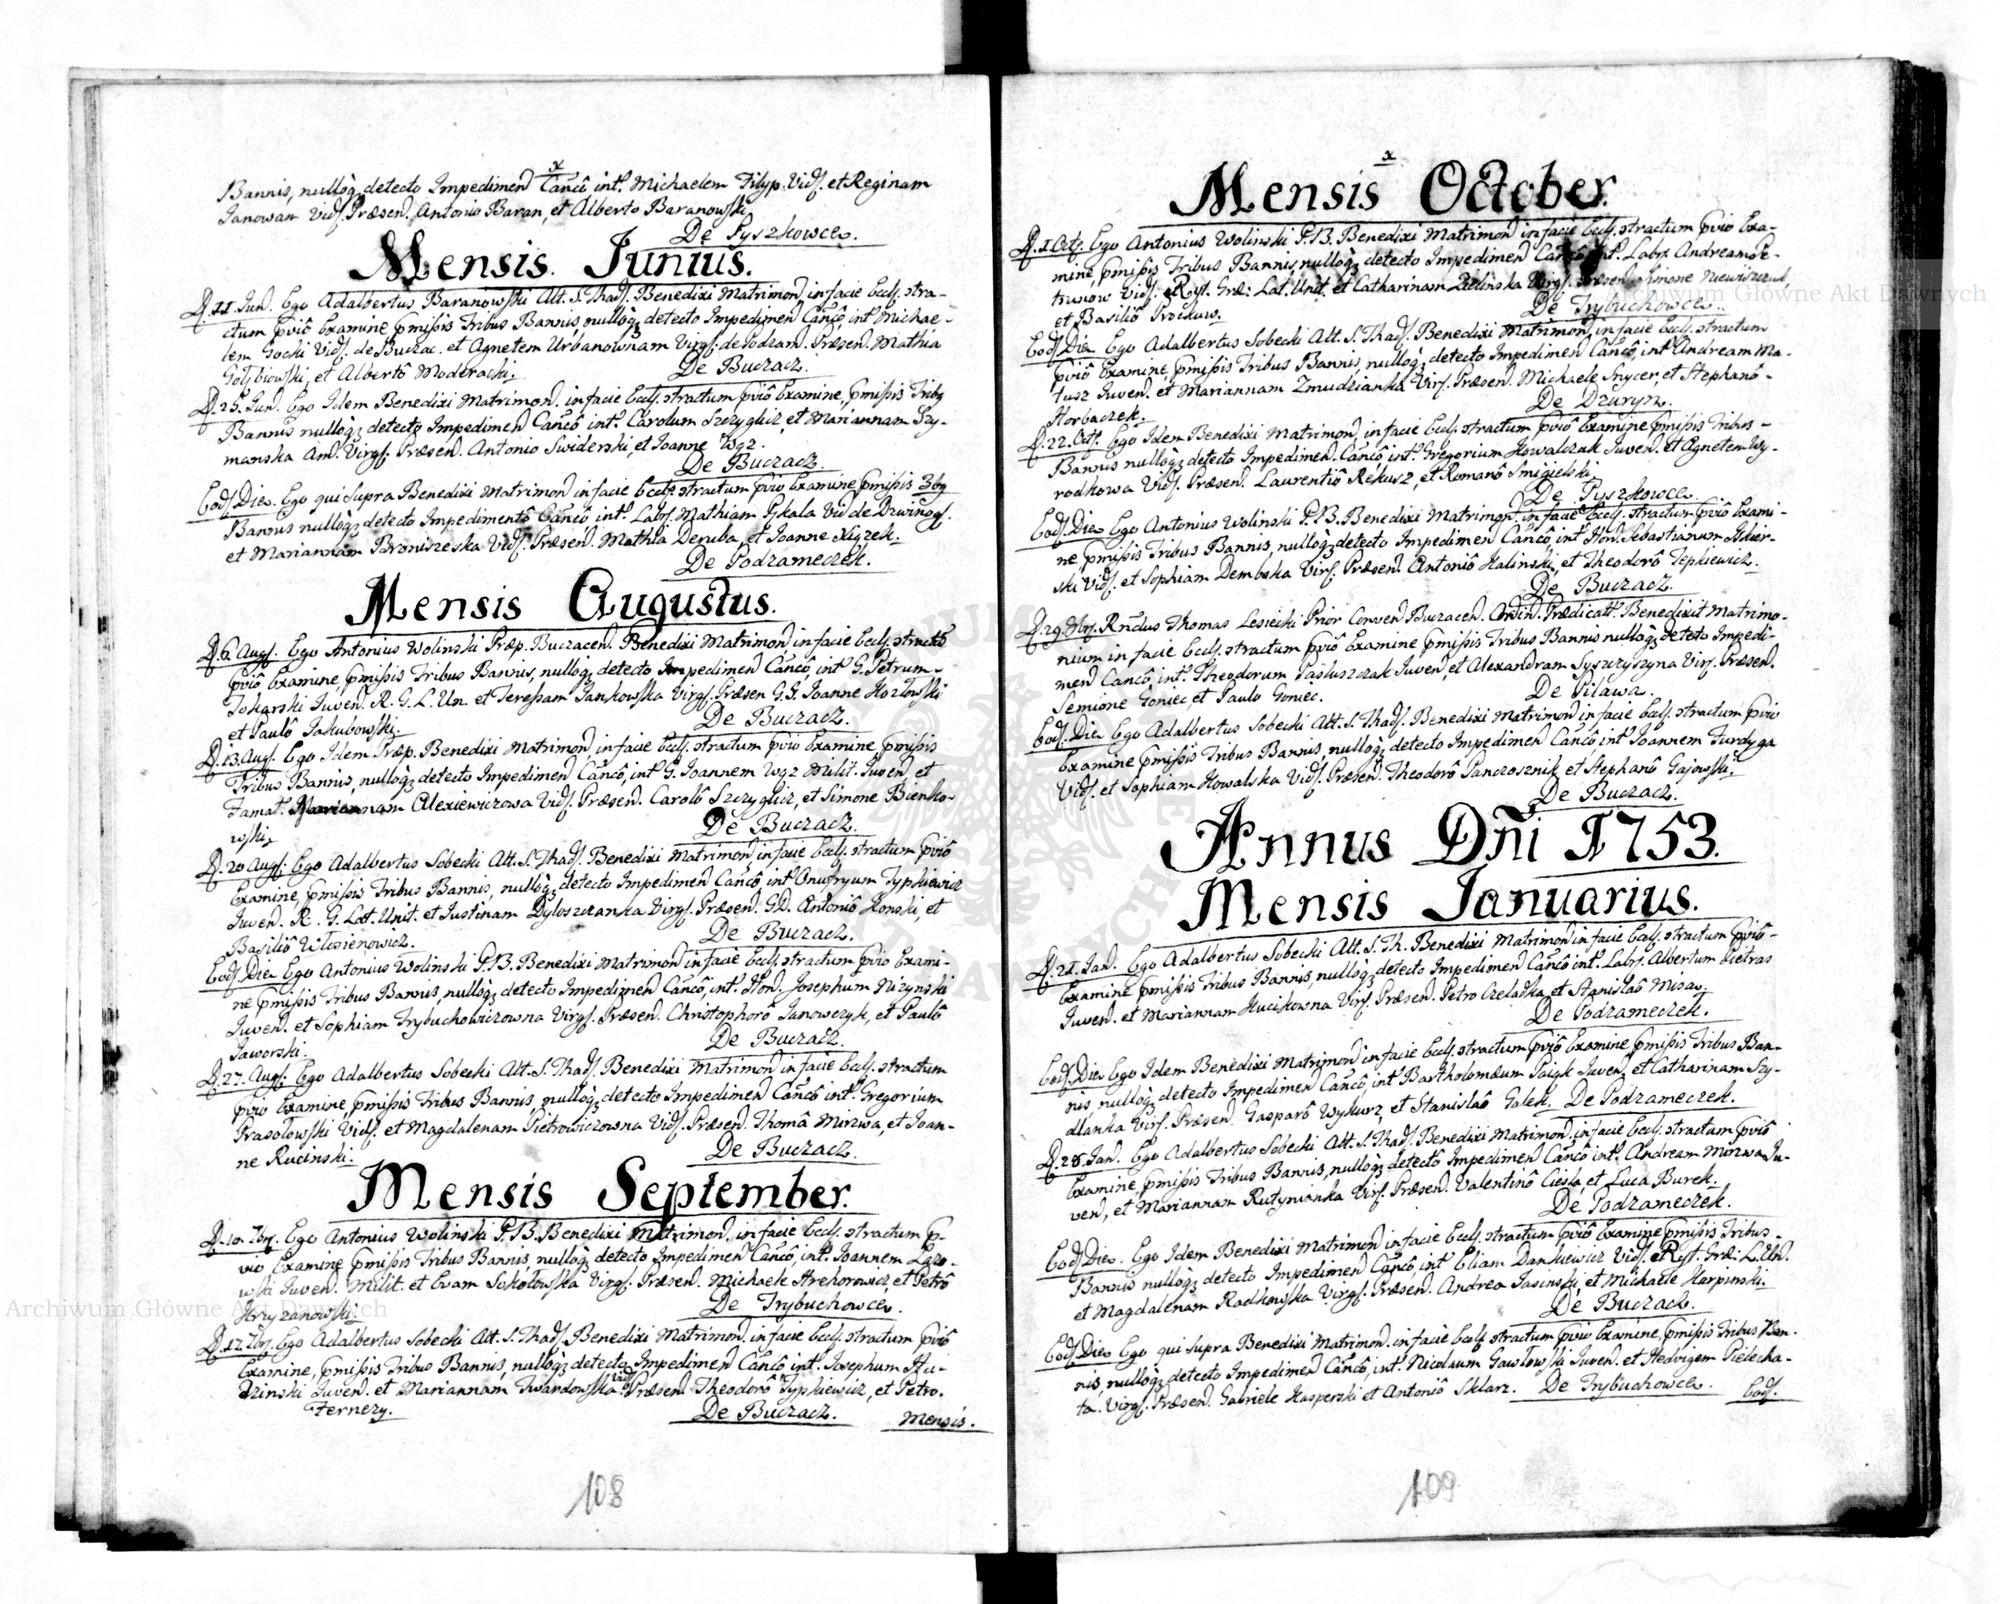 Bannis, nulloq; detecto Impedimen Canco int. Michaelem Filyp. Vid. et Reginam
Janowam Vid. Præsen. Antonio Baran, et Alberto Baranowski.
De Pyszkowce.
Mensis Junius.
D. 11. Jun. Ego Adalbertus Baranowski Alt. S. Thad. Benedixi Matrimon in facie Eccl. stra-
ctum pvio Examine, pmissis Tribus Bannis, nulloq; detecto Impedimen Canco int. Michae-
lem Gocki Vid. de Buczac. et Agnetem Urbanownam Virg. de Podzam. Præsen. Mathia
Golębiowski, et Alberto Moderacki.
De Buczacz.
D. 25. Jun. Ego Idem Benedixi Matrimon. in facie Eccl. stractum pvio Examine, pmissis Tribq
Bannis nulloq; detecto Impedimen Canco int. Carolum Szczyglicz, et Mariannam Szy-
manska Am. Virg. Præsen. Antonio Swiderski et Joanne Węz.
De Buczacz.
Eod. Die. Ego qui Supra Benedixi Matrimon in facie Eccle stractum pvio Examine, pmissis 3bq
Bannis nulloq; detecto Impedimento Canco, int. Lab. Mathiam Pękala Vid de Dzwinog.
et Mariannam Broniszeska Vid. Præsen. Mathia Deruba, et Joanne Xiązek.
De Podzameczek.
Mensis Augustus.
D. 6. Aug. Ego Antonius Wolinski Præp. Buczacen. Benedixi Matrimon in facie Eccl. structo
pvio Examine, pmissis Tribus Bannis, nulloq; detecto Impedimen Canco, int. G. Petrum
Tokarski Juven. R. G. L. Un. et Teressam Jankowska Virg. Præsen G.G. Joanne Kozlowski
et Paulo Jakubowski.
De Buczacz.
D. 13. Aug. Ego Idem Præp. Benedixi Matrimon, in facie Eccl. stractum pvio Examine, pmissis
Tribus Bannis, nulloq; detecto Impedimen Canco, int. G. Joannem Węz Milit. Juven et
Famat. Mariannam Alexiewiczowa Vid. Præsen. Carolo Szczyglicz, et Simone Bienko-
wski.
De Buczacz.
D. 20 Aug. Ego Adalbertus Sobecki Alt. S. Thad. Benedixi Matrimon, in facie Eccl. stractum pvio
Examine, pmissis Tribus Bannis, nulloq; detecto Impedimen Canco, int. Onufryum Typkiewicz
Juven. R. G. Lat. Unit. et Justinam Dyloszczanka Virg. Præsen. GD. Antonio Konski, et
Basilio Wlosienowicz.
De Buczacz.
Eod. Die Ego Antonius Wolinski P.B. Benedixi Matrimon in facie Eccl. stractum pvio Exami-
ne pmissis Tribus Bannis, nulloq; detecto Impedimen Canco, int. Hon. Josephum Nizynski
Juven. et Sophiam Trybuchowiczowna Virg. Præsen. Christophoro Janowczyk, et Paulo
Jaworski.
De Buczacz.
D. 27. Aug. Ego Adalbertus Sobecki Alt. S. Thad. Benedixi Matrimon in facie Eccl. stractum
pvio Examine, pmissis Tribus Bannis, nulloq; detecto Impedimen Canco int. Gregorium
Prasolowski Vid. et Magdalenam Pietrowiczowna Vid. Præsen. Thoma Mirzwa, et Joan-
ne Rucinski.
De Buczacz.
Mensis September.
D. 10. 7br. Ego Antonius Wolinski P.B. Benedixi Matrimon. in facie Eccl. stractum p-
vio Examine pmissis Tribus Bannis, nulloq; detecto Impedimen Canco, int. Joannem Lazo-
wski Juven. Milit. et Evam Sokolowska Virg. Præsen. Michaele Hrehorowicz, et Petro
Krzyzanowski.
De Trybuchowce.
D. 17. 7br. Ego Adalbertus Sobecki Alt. S. Thad. Benedixi Matrimon. in facie Eccl. stractum pvio
Examine, pmissis Tribus Bannis, nulloq; detecto Impedimen Canco int. Josephum Stu-
dzinski Juven. et Mariannam Twardowska Vid Præsen. Theodoro Typkiewicz, et Petro
Ternezy.
De Buczacz.
Mensis.
108
Mensis October.
D. 1. Oct. Ego Antonius Wolinski P.B. Benedixi Matrimon in facie Eccl. stractum pvio Exa-
mine, pmissis Tribus Bannis, nulloq; detecto Impedimen Canco int. Labr. Andream Pe-
trusiow Vid. Ryt. Græ: Lat. Unit. et Catharinam Zielinska Virg. Præsen. Simone
et Basilio Prockuw.
De Trybuchowce.
Eod. Die Ego Adalbertus Sobecki Alt. S. Thad. Benedixi Matrimon, in facie Eccl. stractum
pvio Examine, pmissis Tribus Bannis, nulloq; detecto Impedimen Canco, int. Andream Ma-
tusz Juven. et Mariannam Zmudzianka Virg. Præsen. Michaele Snycer, et Stephano
Horbaczek.
De Dzuryn.
D. 22. Oct. Ego Idem Benedixi Matrimon, in facie Eccl. stractum pvio Examine pmissis Tribus
Bannis nulloq; detecto Impedimen. Canco int. Gregorium Kowalczuk Juven. et Agnetem Wy-
rodkowa Vid. Præsen. Laurentio Rekusz, et Romano Smigielski.
De Pyszkowce.
Eod. Die Ego Antonius Wolinski P.B. Benedixi Matrimon, in facie Eccl. stractum pvio Exami-
ne pmissis Tribus Bannis, nulloq; detecto Impedimen Canco int. Hon. Sebastianum Skier-
ski Vid. et Sophiam Dembska Virg. Præsen. Antonio Kalinski, et Theodoro Tepkiewicz.
De Buczacz.
D. 29. 8br. Rndus Thomas Lesiecki Prior Conven Buczacen. Ordin. Prædicatt. Benedixit Matrimo-
nium in facie Eccl. stractum pvio Examine pmissis Tribus Bannis nulloq; detecto Impedi-
men Canco, int. Theodorum Pastuszczak Juven, et Alexandram Syszczyszyna Virg. Præsen.
Semione Goniec et Paulo Goniec.
De Pilawa.
Eod. Die Ego Adalbertus Sobecki Alt. S. Thad. Benedixi Matrimon, in facie Eccl. stractum pvio
Examine pmissis Tribus Bannis, nulloq; detecto Impedimen Canco int. Joannem Furdyga
Vid. et Sophiam Kowalska Vid. Præsen. Theodoro Panczosznik et Stephano Gajowski.
De Buczacz.
Annus Dni 1753.
Mensis Januarius.
D. 21. Jan. Ego Adalbertus Sobecki Alt. S. Th. Benedixi Matrimon in facie Eccl. stractum pvio
Examine pmissis Tribus Bannis, nulloq; detecto Impedimen Canco int. Labr. Albertum Pietras
Juven. et Mariannam Kucikowna Virg. Præsen. Petro Czeladka, et Stanislao Misa.
De Podzameczek.
Eod. Die Ego Idem Benedixi Matrimon in facie Eccl. stractum pvio Examine pmissis Tribus Ban-
nis, nulloq; detecto Impedimen Canco, int. Bartholomæum Paięk Juven, et Catharinam Szy-
dlanka Virg. Præsen. Gasparo Wykurz, et Stanislao Golek. De Podzameczek.
D. 28. Jan. Ego Adalbertus Sobecki Alt. S. Thad. Benedixi Matrimon, in facie Eccl. stractum pvio
Examine pmissis Tribus Bannis, nulloq; detecto Impedimen Canco int. Andream Mirzwa Ju-
ven, et Mariannam Rutynianka Virg. Præsen. Valentino Ciesla, et Luca Burek.
De Podzameczek.
Eod. Die. Ego Idem Benedixi Matrimon in facie Eccl. stractum pvio Examine pmissis Tribus
Bannis nulloq; detecto Impedimen Canco, int. Eliam Dankiewicz Vid. Ryt. Græ: L. Un.
et Magdalenam Radkowska Virg. Præsen. Andrea Jasinski, et Michaele Karpinski.
De Buczacz.
Eod. Die Ego qui Supra Benedixi Matrimon. in facie Eccl. stractum pvio Examine, pmissis Tribus Ban.
nis, nulloq; detecto Impedimen Canco, int. Nicolaum Gawlowski Juven. et Hedvigem Pielecha-
ta. Virg. Præsen. Gabriele Kasperski et Antonio Sklarz. De Trybuchowce. Eod.
109
Archiwum Główne Akt Dawnych
Archiwum Główne Akt Dawnych